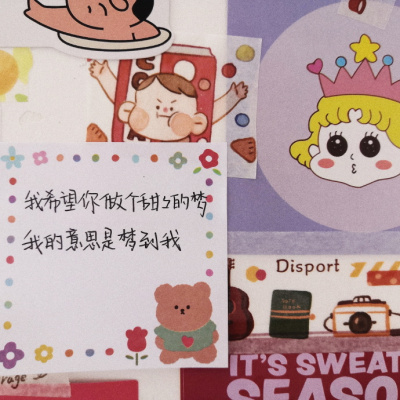 我希望你做个甜甜的梦
我的意思是梦到我
Disport
IT'S SWEAT
SEASON